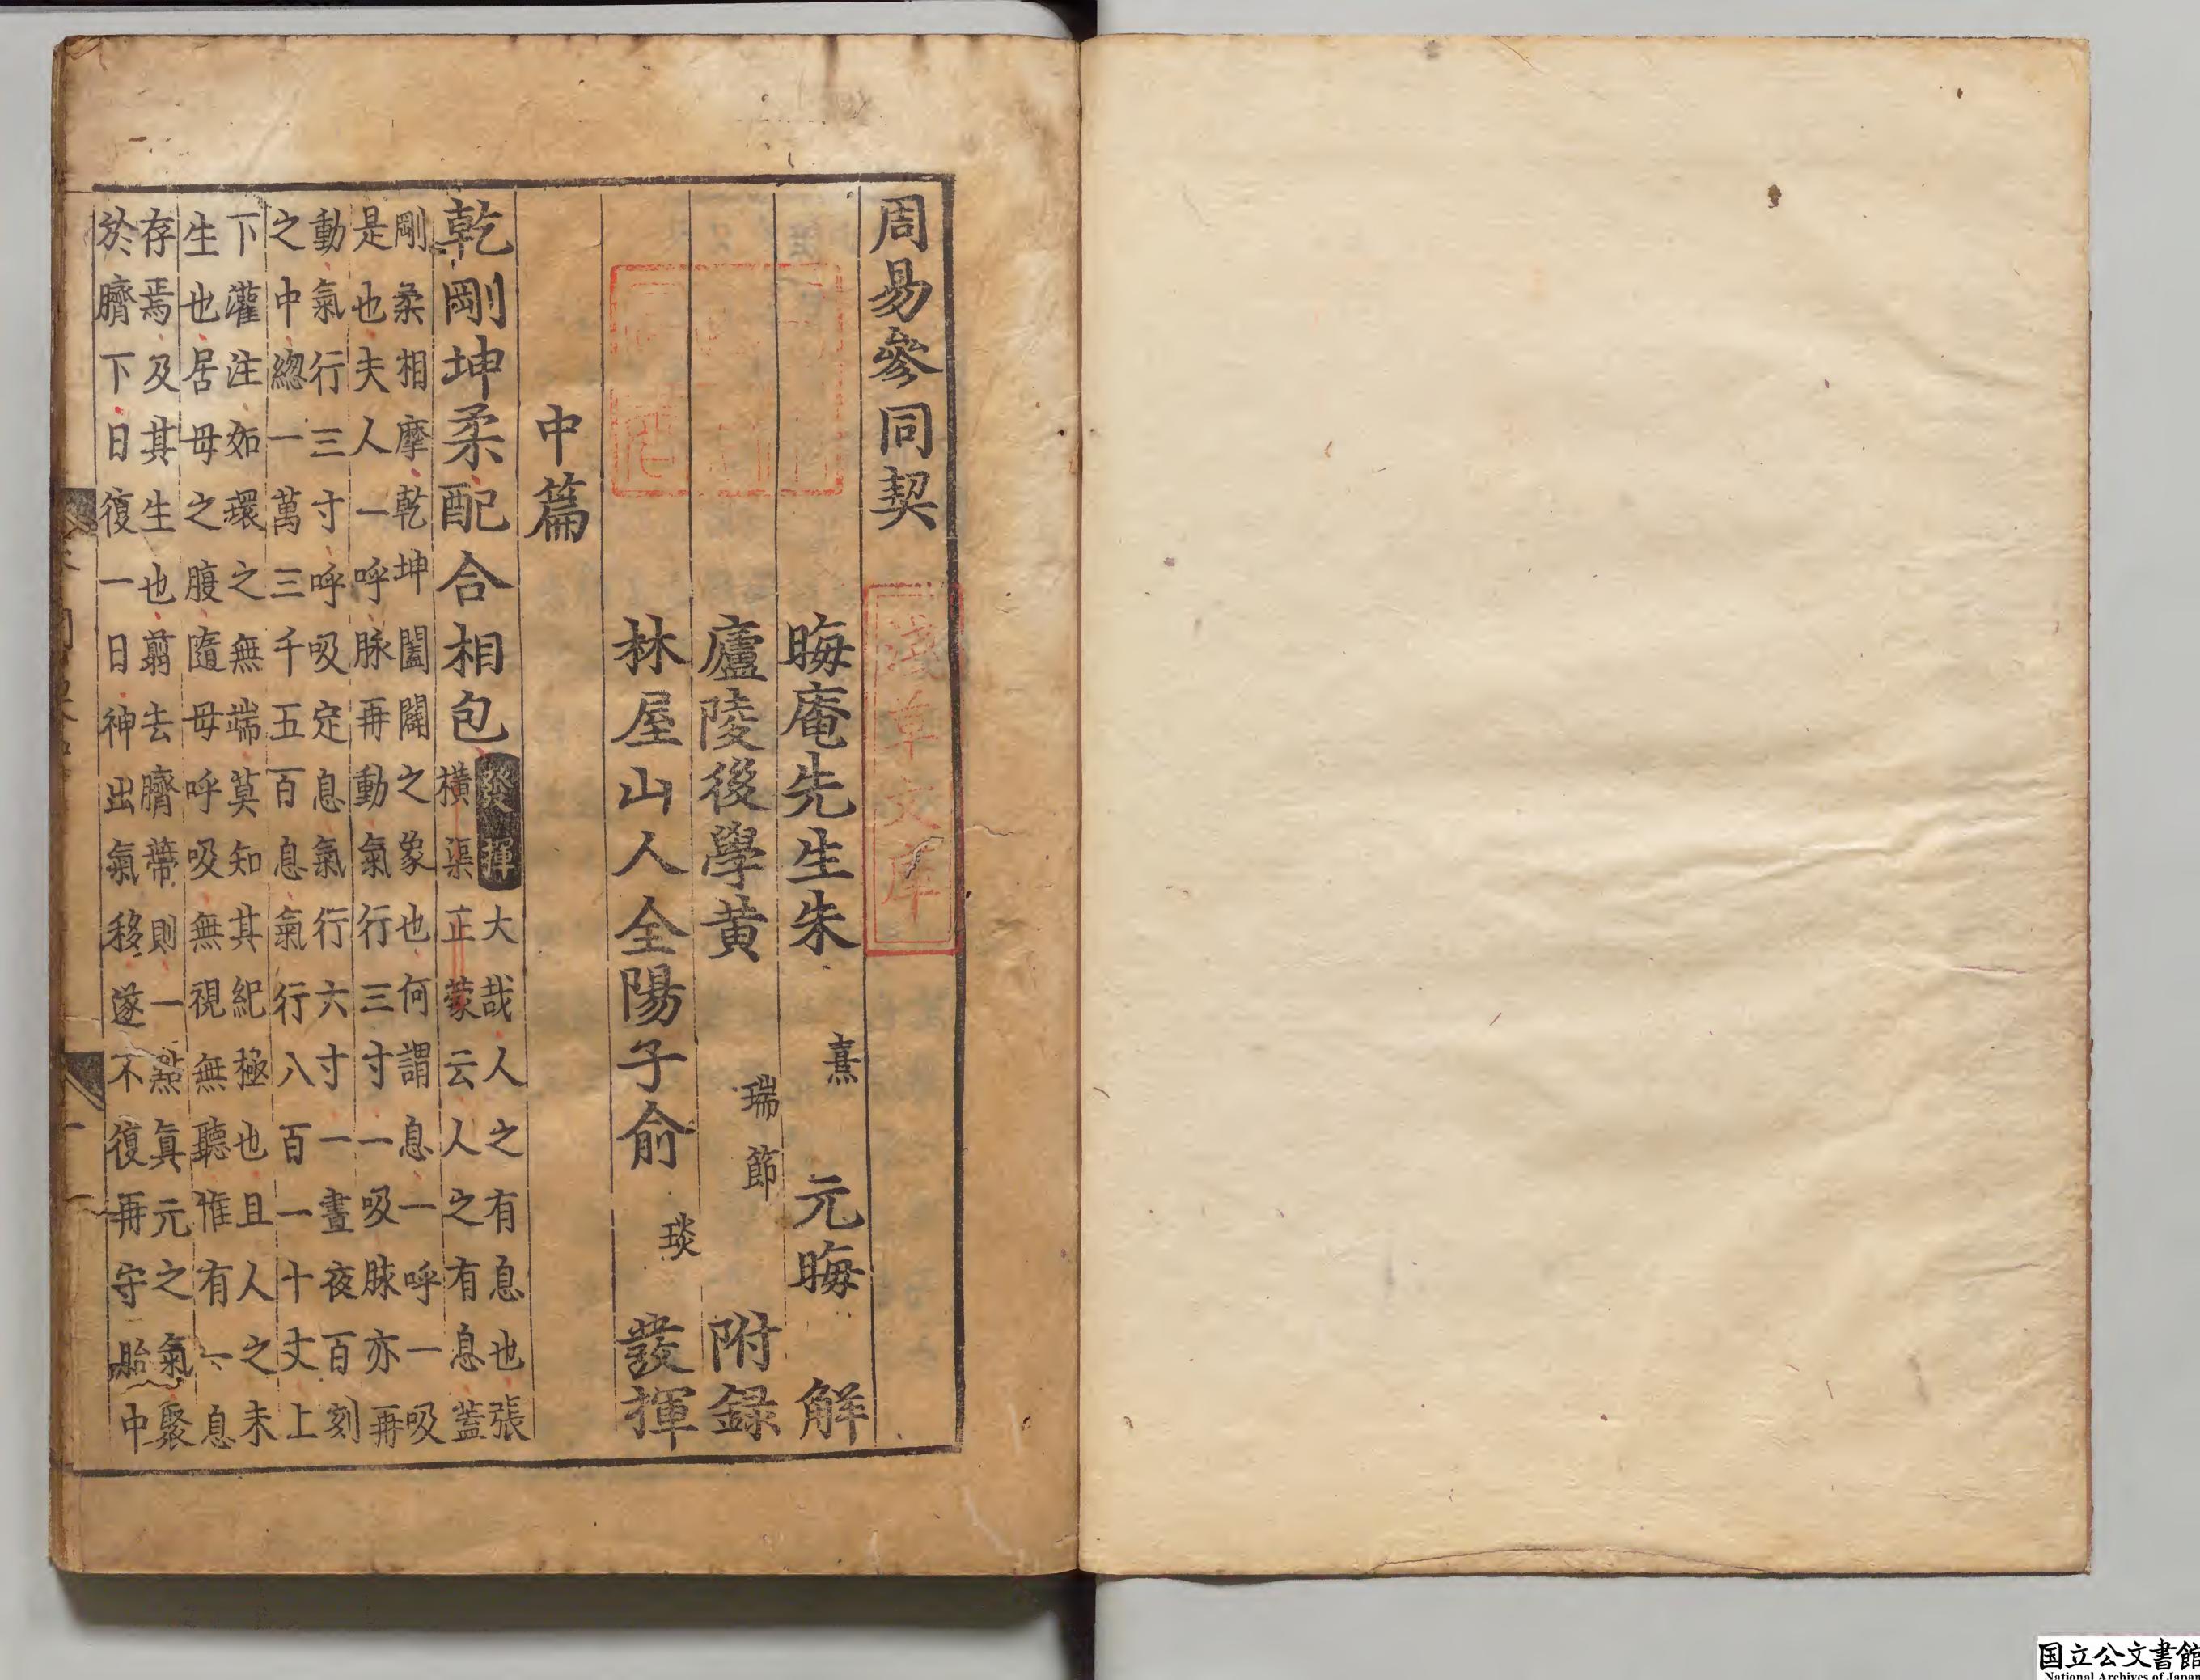 周易參同契
晦庵先生朱 熹 元晦 解
廬陵後學黄 瑞節 附録
林屋山人全陽子俞 琰 發揮
中篇
乾剛坤柔配合相包 發揮 大哉人之有息也張
横渠正蒙云人之有息蓋
剛柔相摩乾坤闔闢之象也何謂息一呼一吸
是也夫人一呼脉再動氣行三寸一吸脉亦再
動氣行三寸呼吸定息氣行六寸一晝夜百刻
之中緫一萬三千五百息氣行八百一十丈上
下灌注如環之無端莫知其紀極也且人之未
生也居母之腹隨母呼吸無視無聽惟有一息
存焉及其生也翦去臍帶則一㸃眞元之氣聚
於臍下日復一日神出氣移遂不復再守胎中
淺草文庫
国立公文書館
National Archives of Japan